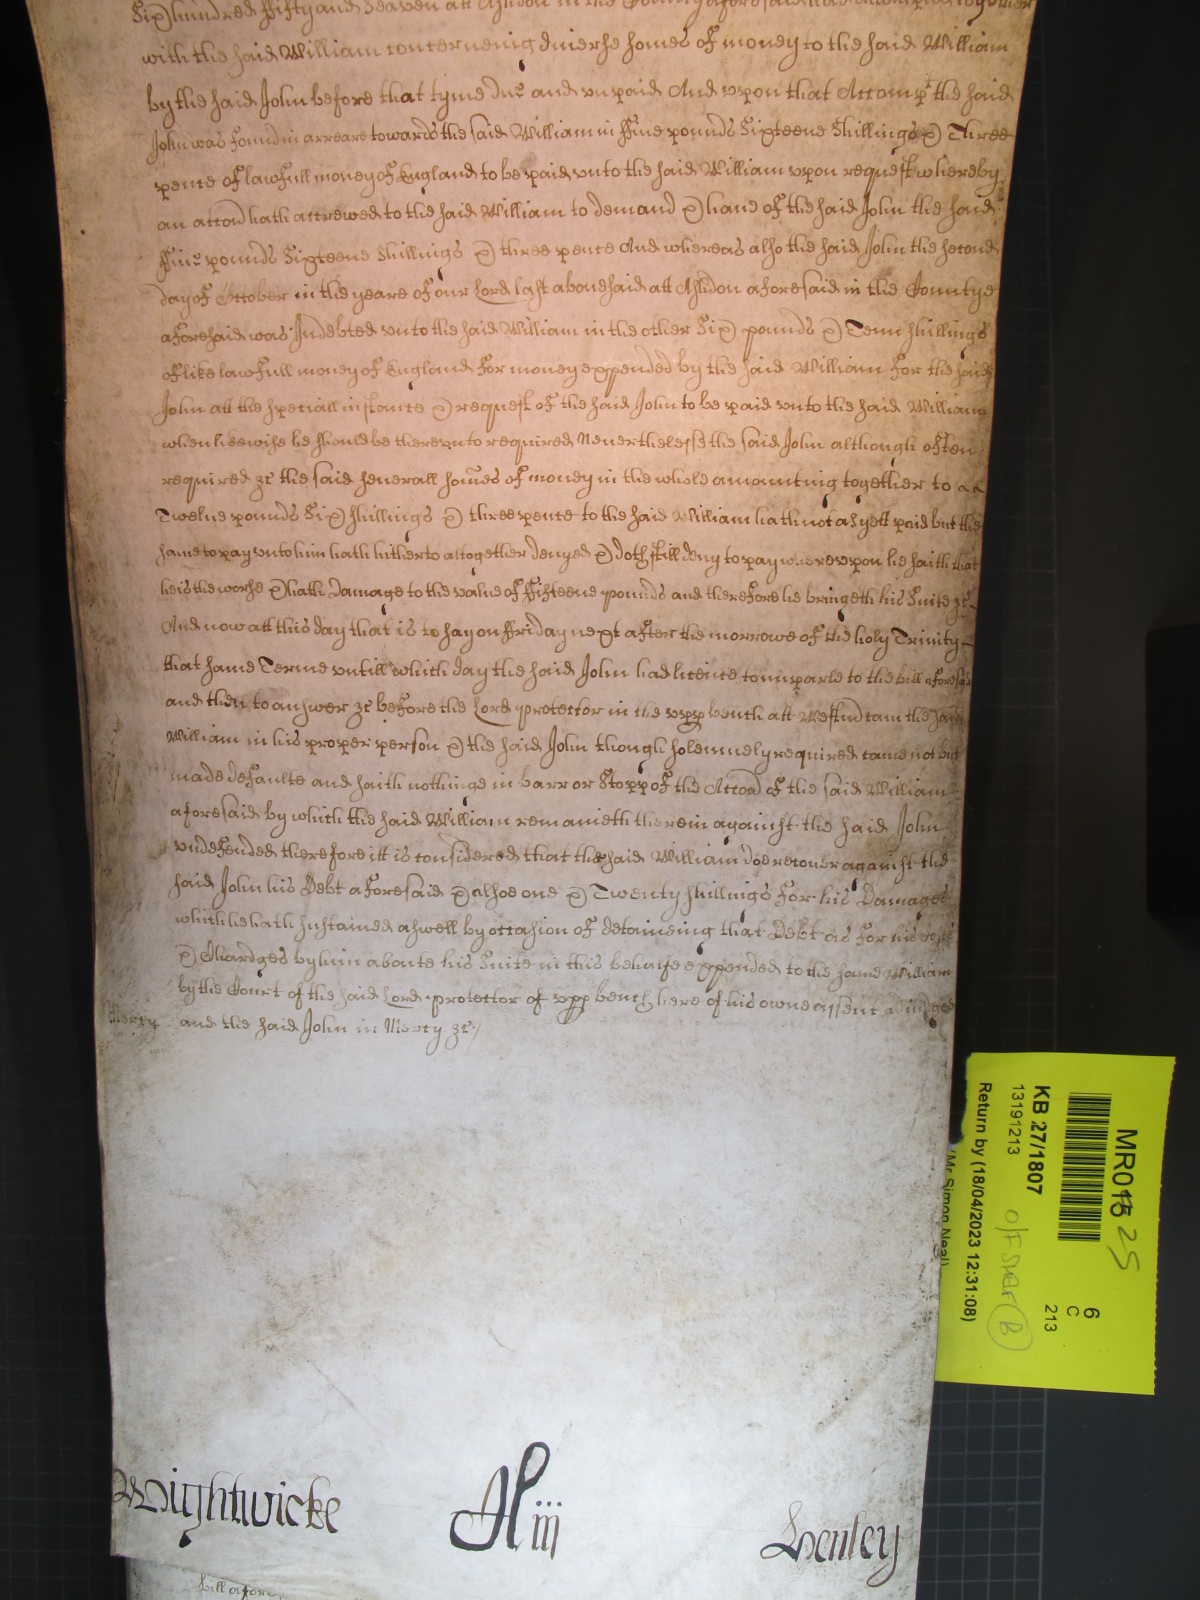 Six hundred ffifty and Seaven att Ashdon in the County aforesaid had accompted together
with the said William concerneing diverse somes of money to the said William
by the said John before that tyme due and vnpaid And vpon that Accompt the said
John was found in arreare towards the said William in ffiue pounds Sixteene Shillings & Three
pence of lawfull money of England to be paid vnto the said William vpon request whereby
an accon hath accrewed to the said William to demand & haue of the said John the said
ffiue pounds Sixteene Shillings & three pence And whereas also the said John the second
day of October in the yeare of our Lord last abouesaid att Ashdon aforesaid in the Countye
aforesaid was Indebted vnto the said William in the other Six pounds & Tenn shillings
of like lawfull money of England For money expended by the said William For the said
John att the speciall instance & request of the said John to be paid vnto the said William
when likewise he should be therevnto required Neuerthelesse the said John although often
required &c the said seuerall somes of money in the whole amounting together to
Twelue pounds Six shillings & three pence to the said William hath not as yett paid but the
same to pay vnto him hath hitherto altogether denyed & doth still deny to pay wherevpon he saith that
he is the worse & hath Damage to the value of ffifteene pounds and therefore he bringeth his Suite &c
And now att this day that is to say on ffriday next after the morrowe of the holy Trinity
that same Terme vntill which day the said John had licence to imparle to the bill aforesaid
and then to answer &c before the Lord protector in the vpp bench att Westm came the said
William in his proper person & the said John though solemnely required came not but
made defaulte and saith nothinge in barr or Stopp of the Accon of the said William
aforesaid by which the said William remaineth therein against the said John
vndefended therefore itt is considered that the said William doe recouer against the
said John his Debt aforesaid & alsoe one & Twenty shillings for his Damages
which he hath sustained aswell by occasion of detaineing that Debt as for his costs
& Chardges by him aboute his Suite in this behalfe expended to the same William
by the Court of the said Lord protector of vpp bench here of his owne assent adiudged
Mercy and the said John in Mercy &c/
Wightwicke iiij Henley
bill afore
MR015 25
KB 27/1807
13191213
Return by (18/04/2023 12:31:08)
(Mr Simon Neal)
6
C
213
B